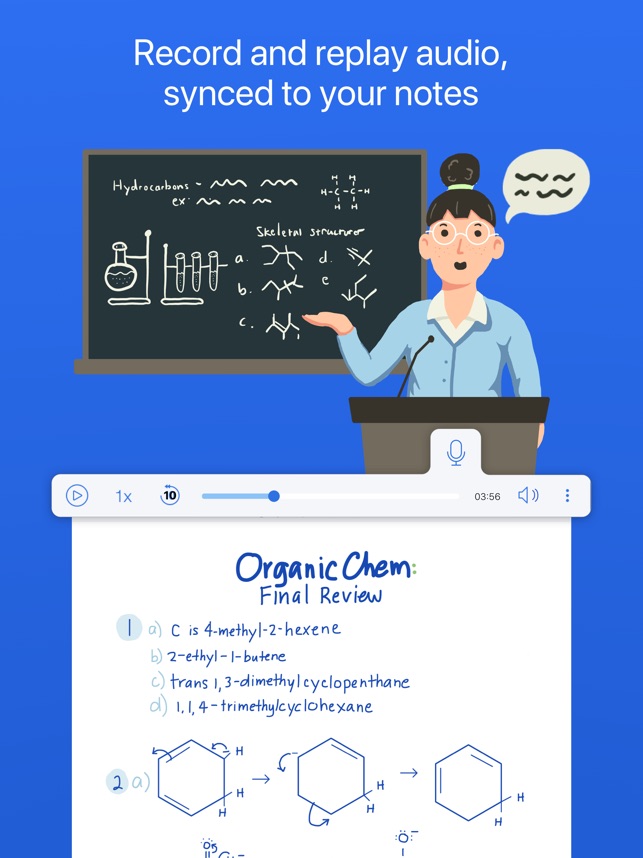 Record and replay audio,
synced to your notes
Hydrocarbons -
ex:
H H
H-C-C-H
H H
Skeletal structures
a. d.
b. e
c.
1x 10 03:56
Organic Chem:
Final Review
1 a) C is 4-methyl-2-hexene
b) 2-ethyl-1-butene
c) trans 1,3-dimethylcyclopenthane
d) 1,1,4-trimethylcyclohexane
2 a)
H
H H
H H
H H